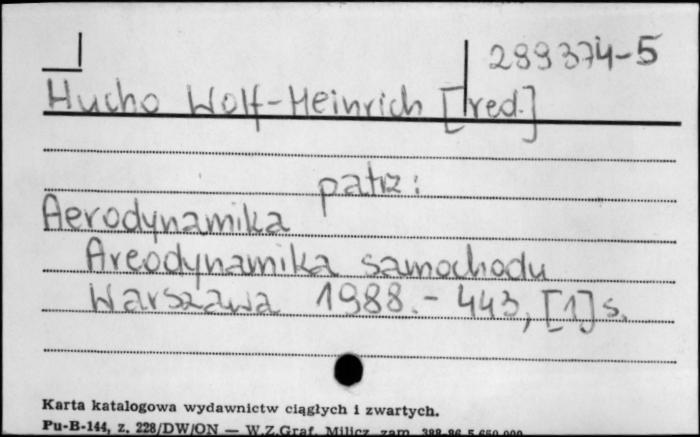 299374-5
Hucho Wolf-Heinrich [red.]
patrz:
Aerodynamika
Areodynamika samochodu
Warszawa 1988.- 443, [1] s.
Karta katalogowa wydawnictw ciągłych i zwartych.
Pu-B-144, z. 228/DW/ON — W.Z.Graf. Milicz, zam. 388-86 5.650.000